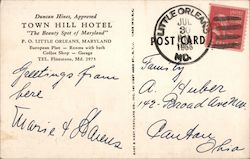 Duncan Hines, Approved
TOWN HILL HOTEL
"The Beauty Spot of Maryland"
P. O. LITTLE ORLEANS, MARYLAND
European Plan - Rooms with bath
Coffee Shop - Garage
TEL. Flintstone, Md. 2973
Greetings from
here
Marie &
LITTLE ORLEANS
JUL
MD.
POST CARD
Family
A. Huber
142- Broad Ave NW
Canton
Ohio